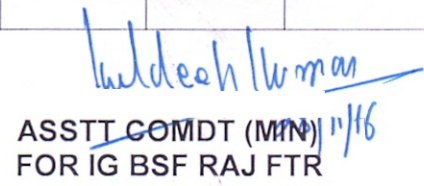 Kuldeep Kumar
ASSTT COMDT (MIN)
FOR IG BSF RAJ FTR